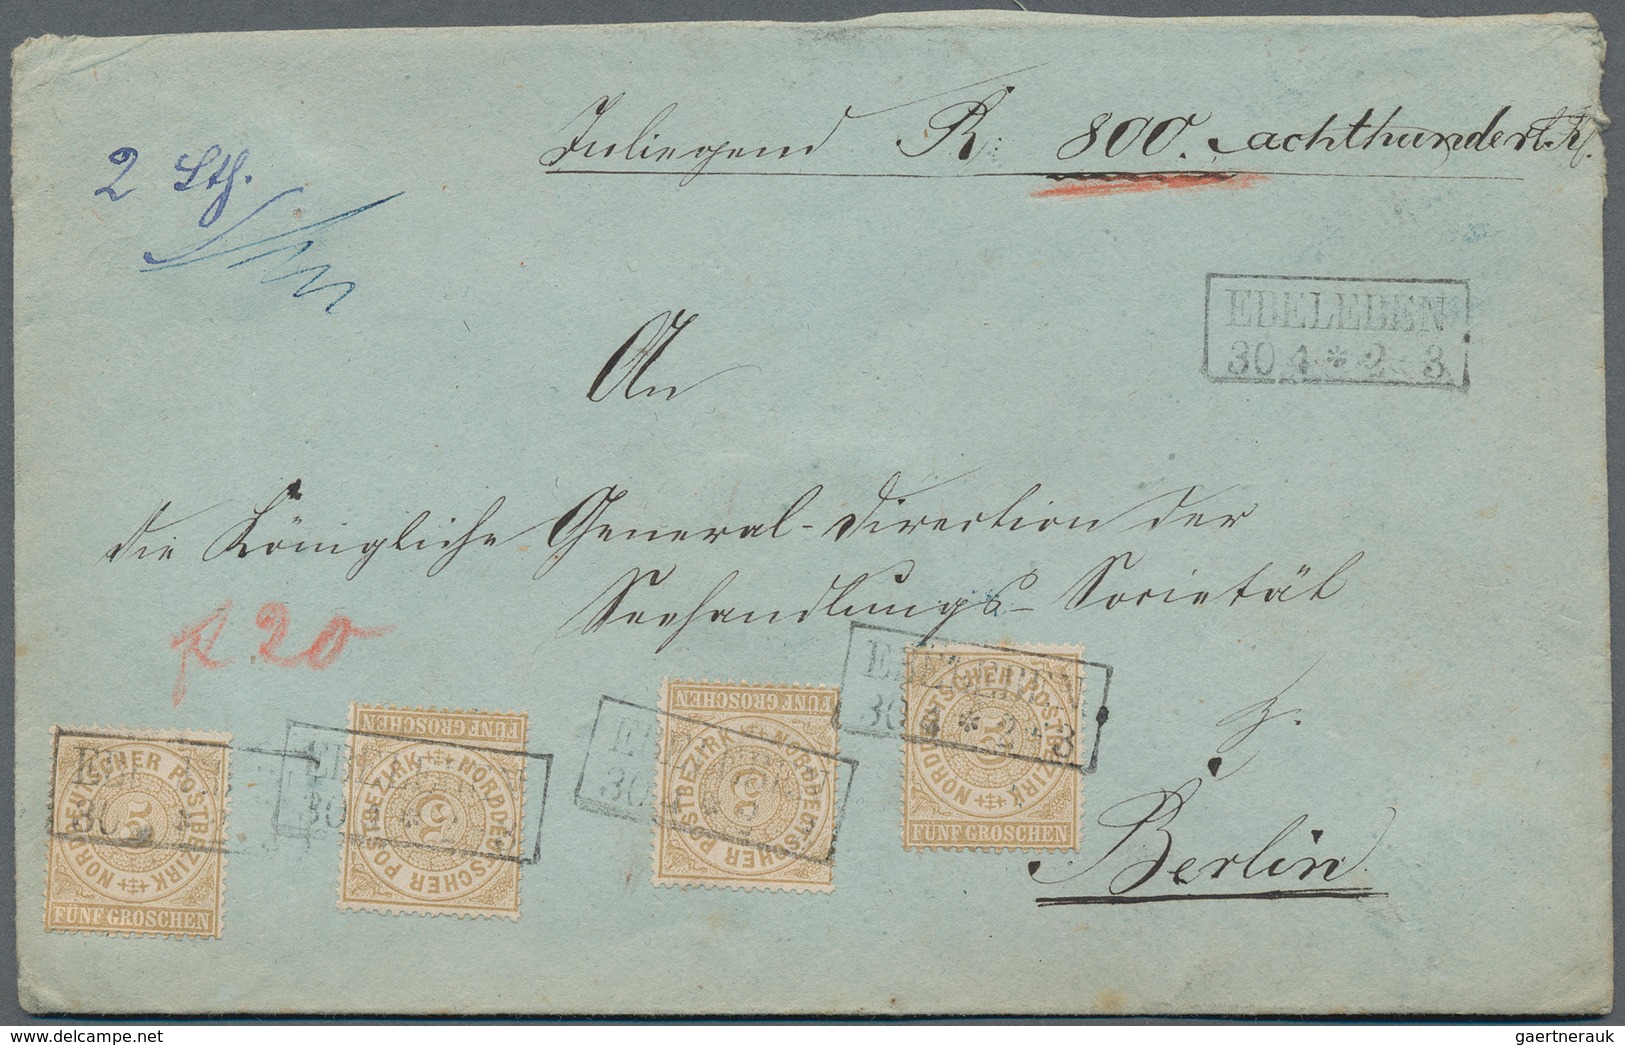 Inliegend R: 800. achthundert R.
2 Lth.
EBELEBEN
30 1 * 2-3
An
die Königliche General-Direction der
Seehandlungs-Societät
z.
Berlin
f 20
EBELEBEN
30 1 *
NORDDEUTSCHER POSTBEZIRK
5
FÜNF GROSCHEN
EBELEBEN
30 1 * 2-3
NORDDEUTSCHER POSTBEZIRK
5
FÜNF GROSCHEN
EBELEBEN
30 1 * 2
NORDDEUTSCHER POSTBEZIRK
5
FÜNF GROSCHEN
EBELEBEN
30 1 * 2-3
NORDDEUTSCHER POSTBEZIRK
5
FÜNF GROSCHEN
gaertnerauk